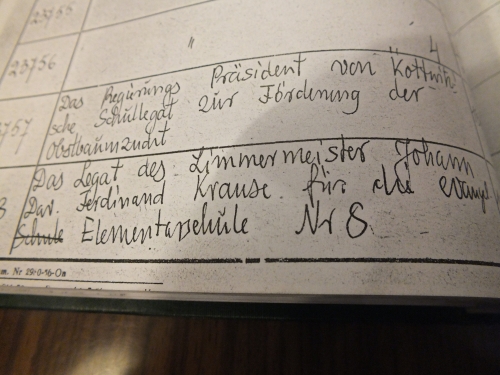 23755
23756
"
4
Das Regierungs Präsident von Kottwitz
23757
sche Schullegat zur Förderung der
Obstbaumzucht
Das Legat des Zimmermeister Johann
8
Dav. Ferdinand Krause für die evangl
Schule Elementarschule Nr 8
m. Nr 29